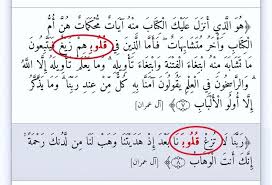 ﴿هُوَ الَّذِي أَنزَلَ عَلَيْكَ الْكِتَابَ مِنْهُ آيَاتٌ مُّحْكَمَاتٌ هُنَّ أُمُّ
الْكِتَابِ وَأُخَرُ مُتَشَابِهَاتٌ ۖ فَأَمَّا الَّذِينَ فِي قُلُوبِهِمْ زَيْغٌ فَيَتَّبِعُونَ
مَا تَشَابَهَ مِنْهُ ابْتِغَاءَ الْفِتْنَةِ وَابْتِغَاءَ تَأْوِيلِهِ ۗ وَمَا يَعْلَمُ تَأْوِيلَهُ إِلَّا اللَّهُ ۗ
وَالرَّاسِخُونَ فِي الْعِلْمِ يَقُولُونَ آمَنَّا بِهِ كُلٌّ مِّنْ عِندِ رَبِّنَا ۗ وَمَا يَذَّكَّرُ
إِلَّا أُولُو الْأَلْبَابِ﴾ [آل عمران: ٧]
﴿رَبَّنَا لَا تُزِغْ قُلُوبَنَا بَعْدَ إِذْ هَدَيْتَنَا وَهَبْ لَنَا مِن لَّدُنكَ رَحْمَةً ۚ
إِنَّكَ أَنتَ الْوَهَّابُ﴾ [آل عمران: ٨]